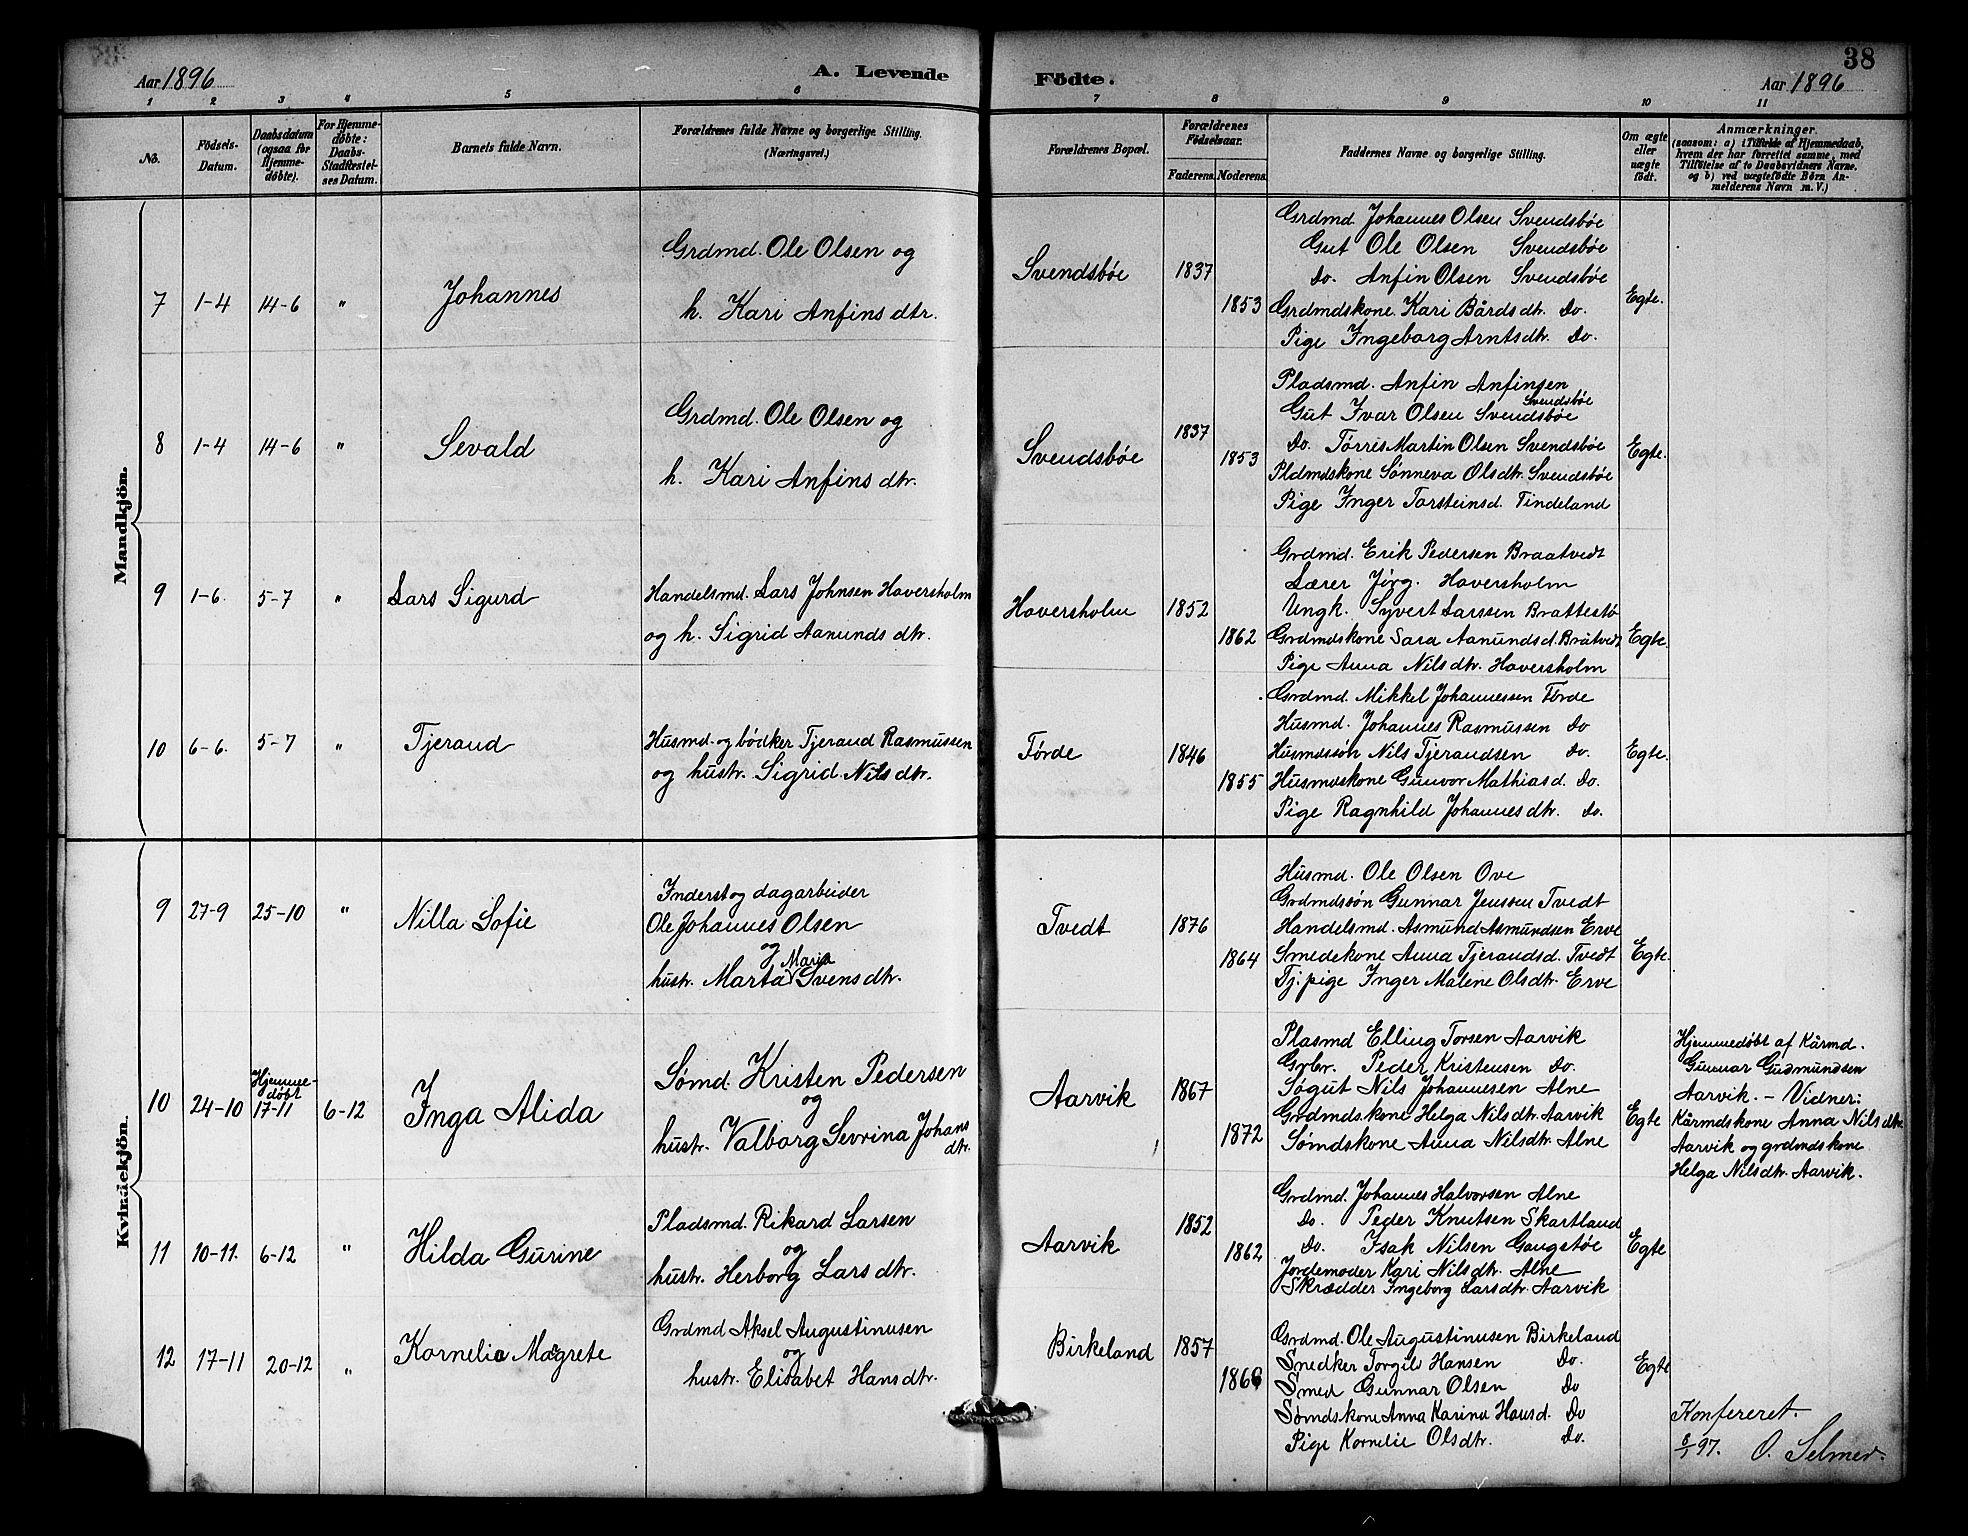 38
Aar 1896
A. Levende
Födte.
Aar 1896
1 2 3 4 5 6 7 8 9 10 11
No.
Födsels-
Datum.
Daabsdatum
(ogsaa for
Hjemme-
døbte).
For Hjemme-
døbte:
Daabs-
Stadfæstel-
ses Datum.
Barnets fulde Navn.
Forældrenes fulde Navne og borgerlige Stilling.
(Næringsvei.)
Forældrenes Bopæl.
Forældrenes
Födselsaar.
Faderens. Moderens.
Faddernes Navne og borgerlige Stilling.
Om ægte
eller
uægte
födt.
Anmærkninger.
(saasom: a) i Tilfælde af Hjemmedaab,
hvem der har forrettet samme, med
Tilföielse af to Daabsvidners Navne,
og b) ved uægtefödte Börn An-
melderens Navn m. V.)
Mandkjön.
7 1-4 14-6 " Johannes
Grdmd. Ole Olsen og
h. Kari Anfinsdtr.
Svendsbøe 1837
1853
Grdmd. Johannes Olsen Svendsbøe
Gut Ole Olsen Svendsbøe
Do. Anfin Olsen Svendsbøe
Grdmdskone. Kari Bårdsdt. Do.
Pige Ingeborg Arntsdtr. Do.
Egte.
8 1-4 14-6 " Sevald
Grdmd. Ole Olsen og
h. Kari Anfinsdtr.
Svendsbøe 1837
1853
Pladsmd. Anfin Anfinsen
Svendsbøe
Gut Ivar Olsen Svendsbøe
Do. Tørris Martin Olsen Svendsbøe
Pldmdskone Sønneva Olsdtr. Svendsbøe
Pige Inger Torsteinsd. Tindeland
Egte.
9 1-6. 5-7 " Lars Sigurd
Handelsmd. Lars Johnsen Haversholm
og h. Sigrid Aanundsdtr.
Haversholm 1852
1862
Grdmd. Erik Pedersen Braatvedt
Lærer Jørg. Haversholm
Ungk. Syvert Larssen Brattestø
Grdmdskone Sara Aanundsd. Bråtvedt
Pige Anna Nilsdtr. Haversholm
Egte.
10 6-6. 5-7 " Tjerand
Husmd. og bødker Tjerand Rasmussen
og hustr. Sigrid Nilsdtr.
Førde 1846
1855
Grdmd. Mikkel Johannessen Førde
Husmd. Johannes Rasmussen Do
Husmdssøn Nils Tjerandsen Do.
Husmdskone Gunvor Mathiasd. Do.
Pige Ragnhild Johannesdtr. Do.
Egte.
Kvindekjön.
9 27-9 25-10 " Nilla Sofie
Inderst og dagarbeider
Ole Johannes Olsen
og
Maria
hustr. Marta Svensdtr.
Tvedt 1876
1864
Husmd. Ole Olsen Ove
Grdmdssøn Gunnar Jenssen Tvedt
Handelsmd. Asmund Asmundsen Erve
Smedekone Anna Tjerandsd. Tvedt
Tj.pige Inger Malene Olsdtr. Erve
Egte.
10 24-10 Hjemme-
døbt
17-11 6-12 Inga Alida
Sømd. Kristen Pedersen
og
hustr. Valborg Sevrina Johans
dtr.
Aarvik 1867
1872
Plasmd Elling Torsen Aarvik
Grbr. Peder Kristensen Do.
Søgut Nils Johannesen Alne
Grdmdskone Helga Nilsdtr. Aarvik
Sømdskone Anna Nilsdtr. Alne
Egte
Hjemmedøbt af Kårmd.
Gunnar Gudmundsen
Aarvik. - Vidner:
Kårmdskone Anna Nilsdtr.
Aarvik og grdmdskone
Helga Nilsdtr. Aarvik.
11 10-11. 6-12 " Hilda Gurine
Pladsmd. Rikard Larsen
og
hustr. Herborg Larsdtr.
Aarvik 1852
1862
Grdmd. Johannes Halvorsen Alne
Do. Peder Knutsen Skartland
Do. Isak Nilsen Gaugstøe
Jordemoder Kari Nilsdtr. Alne
Skrædder Ingeborg Larsdtr. Aarvik
Egte
12 17-11 20-12 " Kornelia Magrete
Grdmd Aksel Augustinusen
og
hustr. Elisabet Hansdtr.
Birkeland 1857
1866
Grdmd. Ole Augustinusen Birkeland
Snedker Torgils Hansen Do.
Smed Gunnar Olsen Do
Sømdskone Anna Karina Hansd. Do
Pige Kornelie Olsdtr. Do.
Egte
Konfereret.
8/1 97. O. Selmer.